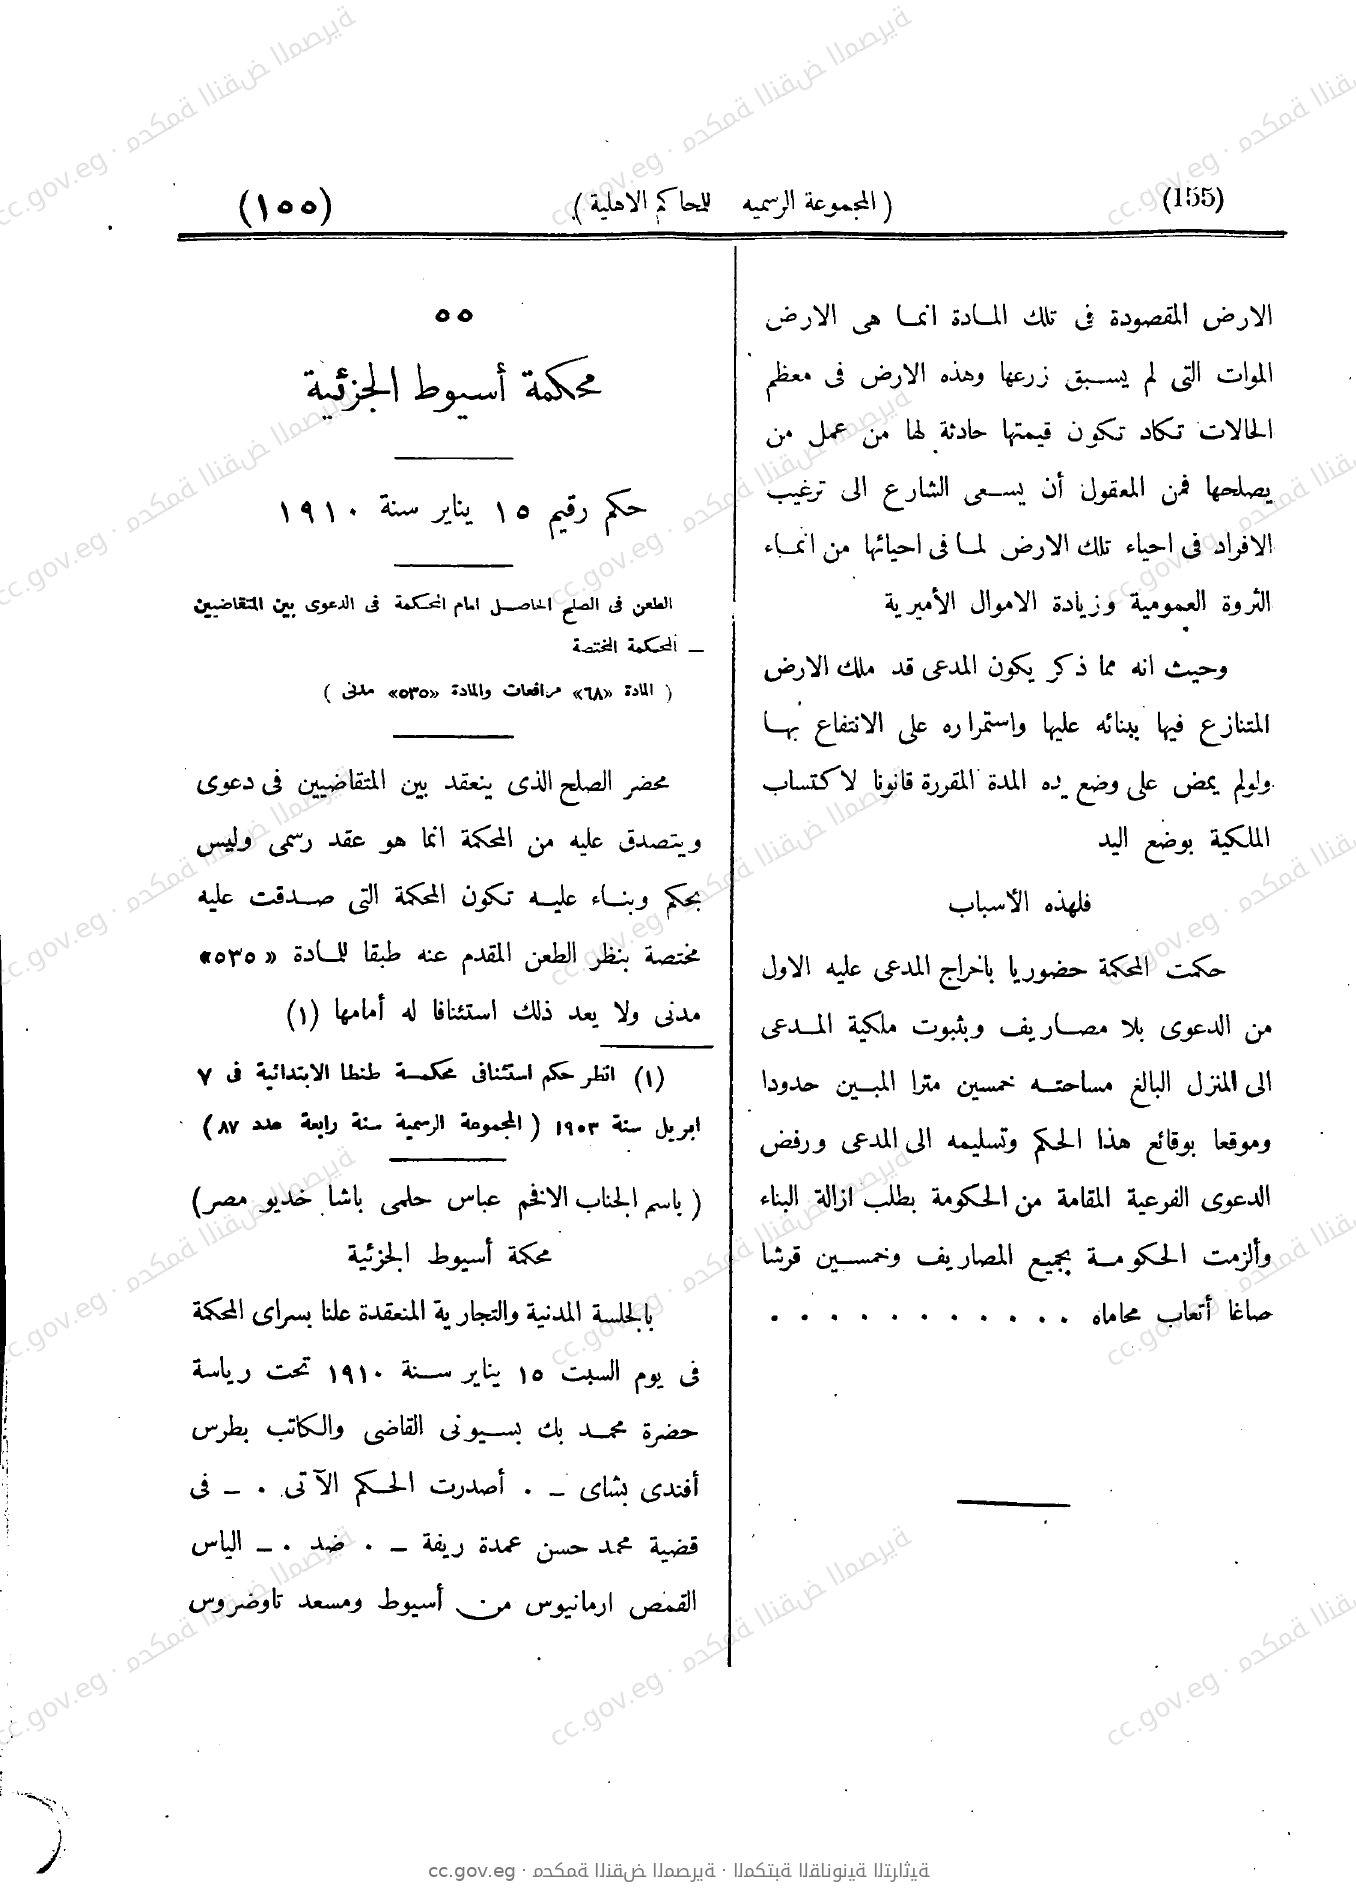 (155)
( المجموعة الرسميه للمحاكم الاهلية )
(١٥٥)
الارض المقصودة فى تلك المادة انما هى الارض
الموات التى لم يسبق زرعها وهذه الارض فى معظم
الحالات تكاد تكون قيمتها حادثة لها من عمل من
يصلحها فمن المعقول أن يسعى الشارع الى ترغيب
الافراد فى احياء تلك الارض لما فى احيائها من انماء
الثروة العمومية وزيادة الاموال الأميرية
وحيث انه مما ذكر يكون المدعى قد ملك الارض
المتنازع فيها ببنائه عليها واستمراره على الانتفاع بها
ولولم يمض على وضع يده المدة المقررة قانونا لاكتساب
الملكية بوضع اليد
فلهذه الأسباب
حكمت المحكمة حضوريا باخراج المدعى عليه الاول
من الدعوى بلا مصاريف وبثبوت ملكية المدعى
الى المنزل البالغ مساحته خمسين مترا المبين حدودا
وموقعا بوقائع هذا الحكم وتسليمه الى المدعى ورفض
الدعوى الفرعية المقامة من الحكومة بطلب ازالة البناء
وألزمت الحكومة بجميع المصاريف وخمسين قرشا
صاغا أتعاب محاماه . . . . . . . . . . .
٥٥
محكمة أسيوط الجزئية
حكم رقيم ١٥ يناير سنة ١٩١٠
الطعن فى الصلح الحاصل امام المحكمة فى الدعوى بين المتقاضيين
— المحكمة المختصة
( المادة «٦٨» مرافعات والمادة «٥٣٥» مدنى )
محضر الصلح الذى ينعقد بين المتقاضيين فى دعوى
ويتصدق عليه من المحكمة انما هو عقد رسمى وليس
بحكم وبناء عليه تكون المحكمة التى صدقت عليه
مختصة بنظر الطعن المقدم عنه طبقا للمادة «٥٣٥»
مدنى ولا يعد ذلك استئنافا له أمامها (١)
(١) انظر حكم استئنافى محكمة طنطا الابتدائية فى ٧
ابريل سنة ١٩٠٣ ( المجموعة الرسمية سنة رابعة عدد ٨٧ )
( باسم الجناب الافخم عباس حلمى باشا خديو مصر )
محكمة أسيوط الجزئية
بالجلسة المدنية والتجارية المنعقدة علنا بسراى المحكمة
فى يوم السبت ١٥ يناير سنة ١٩١٠ تحت رياسة
حضرة محمد بك بسيونى القاضى والكاتب بطرس
أفندى بشاى — . أصدرت الحكم الآتى . — فى
قضية محمد حسن عمدة ريفة — . ضد . — الياس
القمص ارمانيوس من أسيوط ومسعد تاوضروس
cc.gov.eg · محكمة النقض المصرية · المكتبة القانونية التراثية